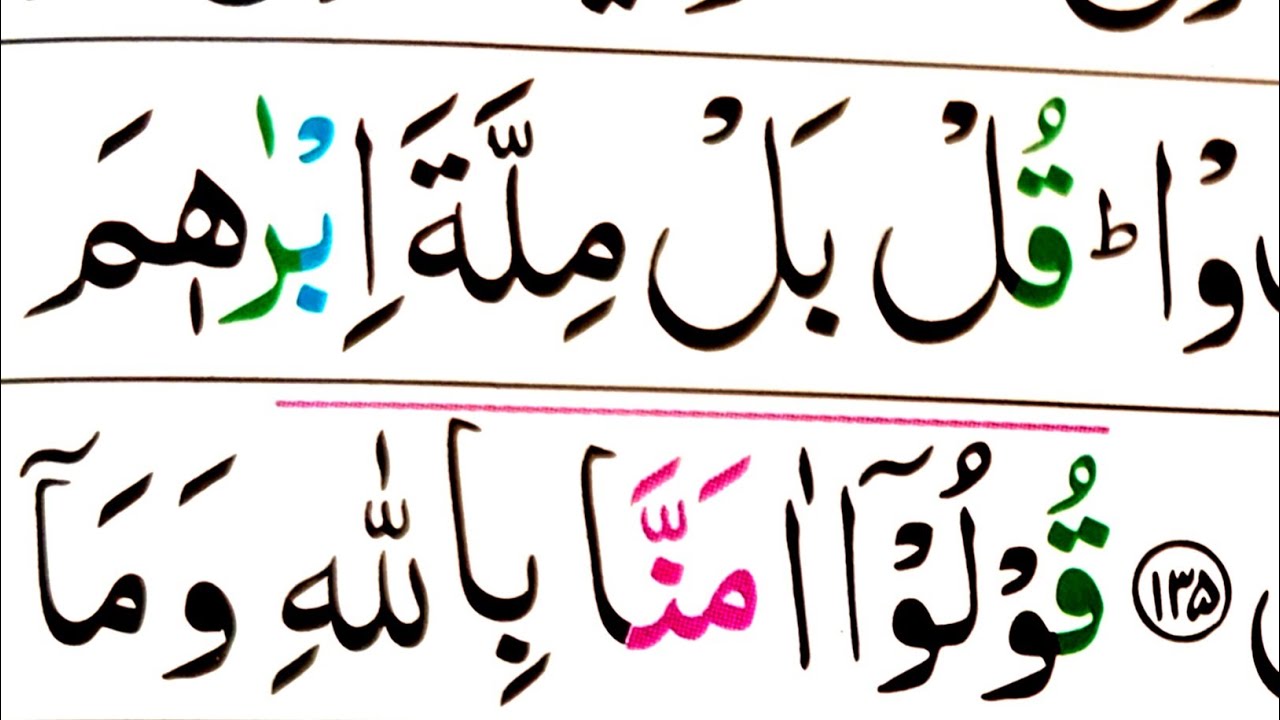 وْاؕ قُلْ بَلْ مِلَّةَ اِبْرٰهٖمَ
﴿۱۳۵﴾ قُوْلُوْۤا اٰمَنَّا بِاللّٰهِ وَمَاۤ